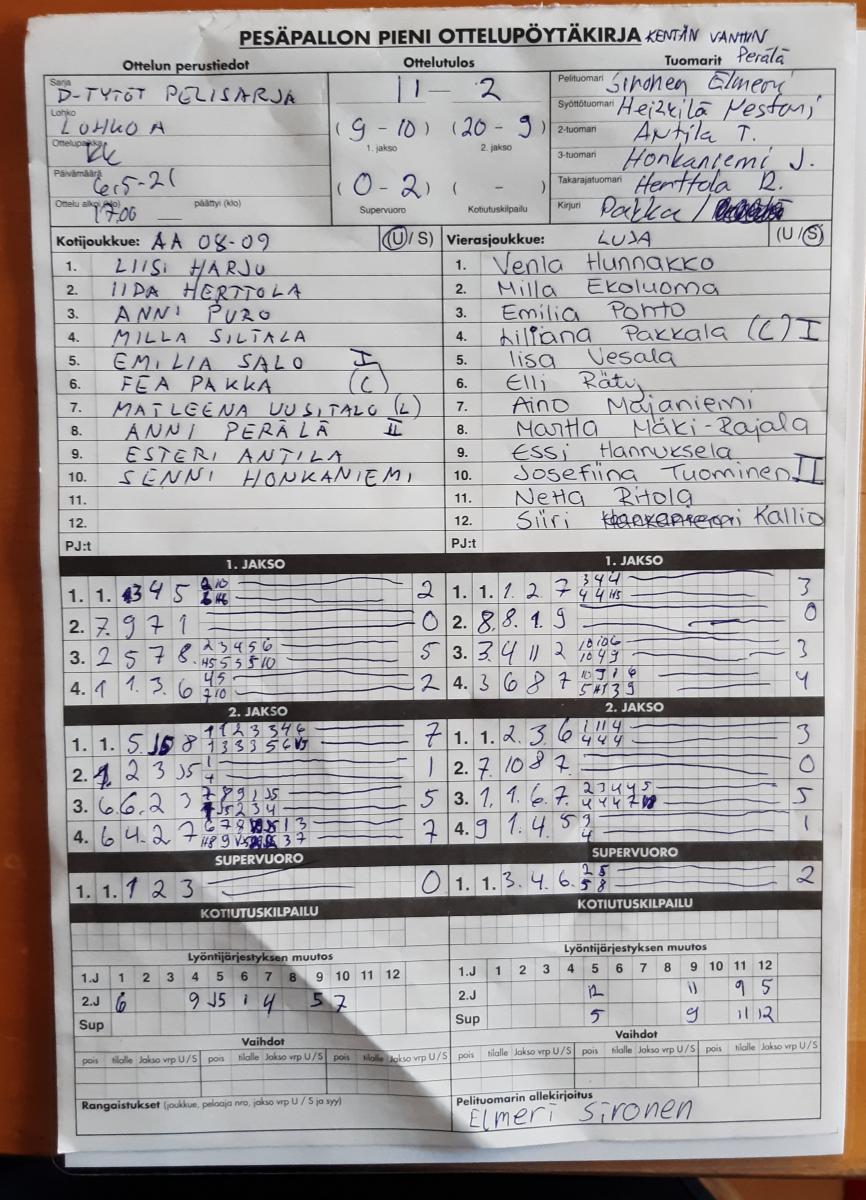 PESÄPALLON PIENI OTTELUPÖYTÄKIRJA KENTÄN VANHIN
Perälä
Ottelun perustiedot
Ottelutulos
Tuomarit
Sarja D-TYTÖT PELISARJA
Lohko LOHKO A
Ottelupaikka KK
Päivämäärä 6.5-21
Ottelu alkoi (klo) 17.00 päättyi (klo)
11 - 2
(9 - 10) (20 - 9)
1. jakso 2. jakso
(0 - 2) ( - )
Supervuoro Kotiutuskilpailu
Pelituomari Sironen Elmeri
Syöttötuomari
2-tuomari Antila T.
3-tuomari Honkaniemi J.
Takarajatuomari Herttola R.
Kirjuri Pakka /
Kotijoukkue: AA 08-09 (U/S)
1. LIISI HARJU
2. IIDA HERTTOLA
3. ANNI PURO
4. MILLA SILTALA
5. EMILIA SALO I
6. FEA PAKKA (C)
7. MATLEENA UUSITALO (L)
8. ANNI PERÄLÄ II
9. ESTERI ANTILA
10. SENNI HONKANIEMI
11.
12.
PJ:t
Vierasjoukkue: LUJA (U/S)
1. Venla Hunnakko
2. Milla Ekoluoma
3. Emilia Pohto
4. Liliana Pakkala (C) I
5. Iisa Vesala
6. Elli Räty
7. Aino Majaniemi
8. Martta Mäki-Rajala
9. Essi Hannuksela
10. Josefiina Tuominen II
11. Netta Ritola
12. Siiri Kallio
PJ:t
1. JAKSO
1. 1. 3 4 5 2
2. 7. 9 7 1 0
3. 2 5 7 8. 2 3 4 5 6 5
4. 1 1. 3. 6 45 710 2
1. JAKSO
1. 1. 1. 2. 7 344 3
2. 8. 8. 1. 9 0
3. 3. 4 11 2 3
4. 3 6 8 7 4
2. JAKSO
1. 1. 5. 8 1 1 2 3 3 4 6 7
2. 2 3 J5 1
3. 6. 6. 2 3 5
4. 6 4. 2 7 7
2. JAKSO
1. 1. 2. 3. 6 1 11 4 444 3
2. 7. 10 8 7. 0
3. 1, 1. 6. 7. 2 3 4 4 5 5
4. 9 1. 4. 5 3 4 1
SUPERVUORO
1. 1. 1 2 3 0
SUPERVUORO
1. 1. 3. 4. 6. 2 5 5 8 2
KOTIUTUSKILPAILU
KOTIUTUSKILPAILU
Lyöntijärjestyksen muutos
1.J 1 2 3 4 5 6 7 8 9 10 11 12
2.J 6 9 J5 1 4 5 7
Sup
Lyöntijärjestyksen muutos
1.J 1 2 3 4 5 6 7 8 9 10 11 12
2.J 12 11 9 5
Sup 5 9 11 12
Vaihdot
pois tilalle Jakso vrp U/S pois tilalle Jakso vrp U/S pois tilalle Jakso vrp U/S
Vaihdot
pois tilalle Jakso vrp U/S pois tilalle Jakso vrp U/S pois tilalle Jakso vrp U/S
Rangaistukset (joukkue, pelaaja nro, jakso vrp U / S ja syy)
Pelituomarin allekirjoitus
Elmeri Sironen